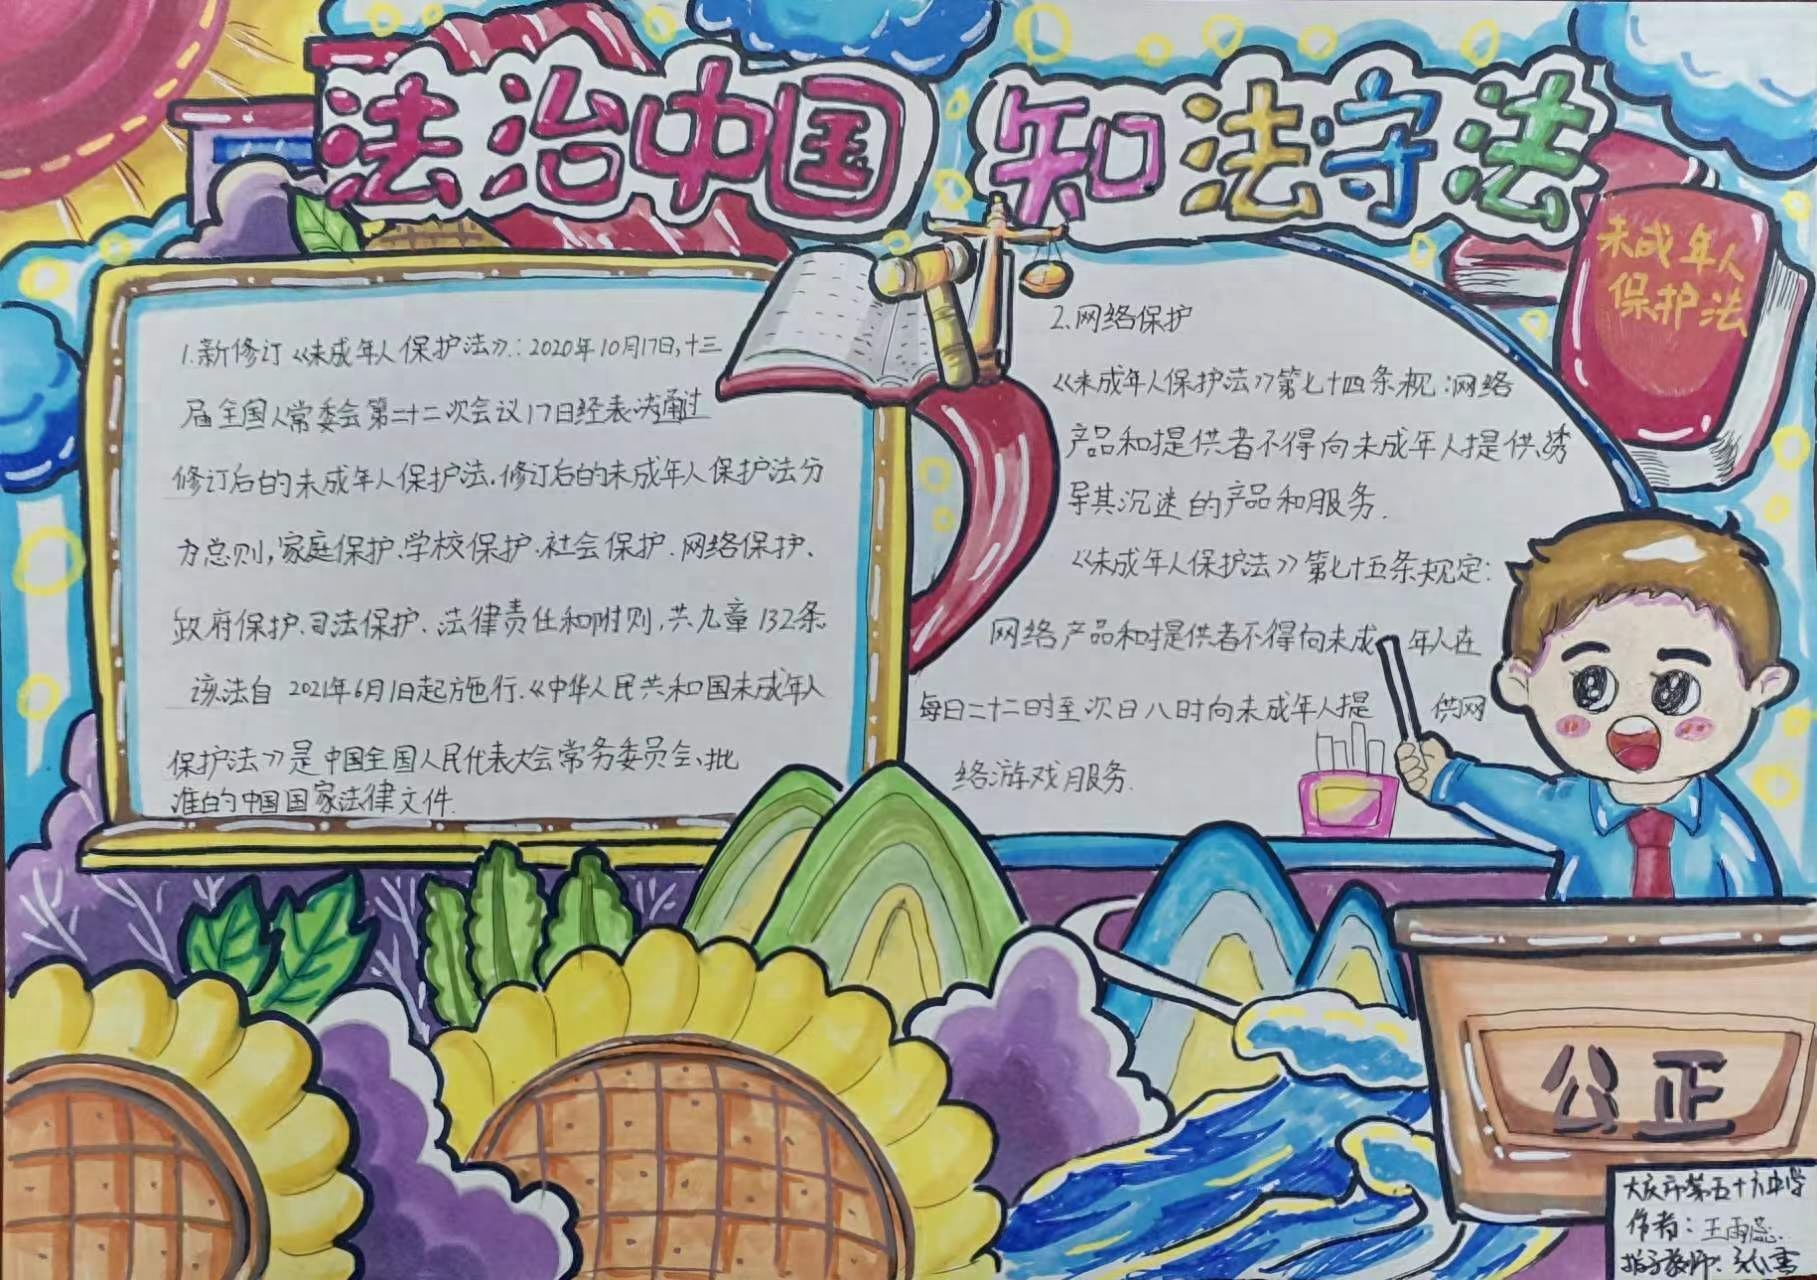 法治中国 知法守法
未成年人
保护法
1.新修订《未成年人保护法》:2020年10月17日,十三
届全国人常委会第二十二次会议17日经表决通过
修订后的未成年人保护法.修订后的未成年人保护法分
为总则,家庭保护、学校保护.社会保护.网络保护、
政府保护、司法保护、法律责任和附则,共九章132条.
该法自 2021年6月1日起施行.《中华人民共和国未成年人
保护法》是中国全国人民代表大会常务委员会、批
准的中国国家法律文件.
2.网络保护
《未成年人保护法》第七十四条规:网络
产品和提供者不得向未成年人提供诱
导其沉迷的产品和服务.
《未成年人保护法》第七十五条规定:
网络产品和提供者不得向未成年人在
每日二十二时至次日八时向未成年人提供网
络游戏服务.
公正
大庆市第五十六中学
作者:王雨蕊
指导教师: